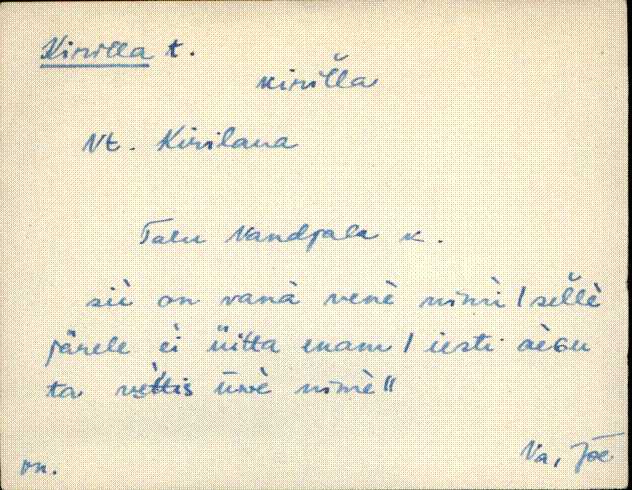 Kirilla t.
kiriľľa
Vt. Kirilana
Talu Vandjala k.
siì on vanà venè nimì / selle
järele èi üitta enam / iesti aèGu
ta vettis üwè nimè"
on. Va, Jõe